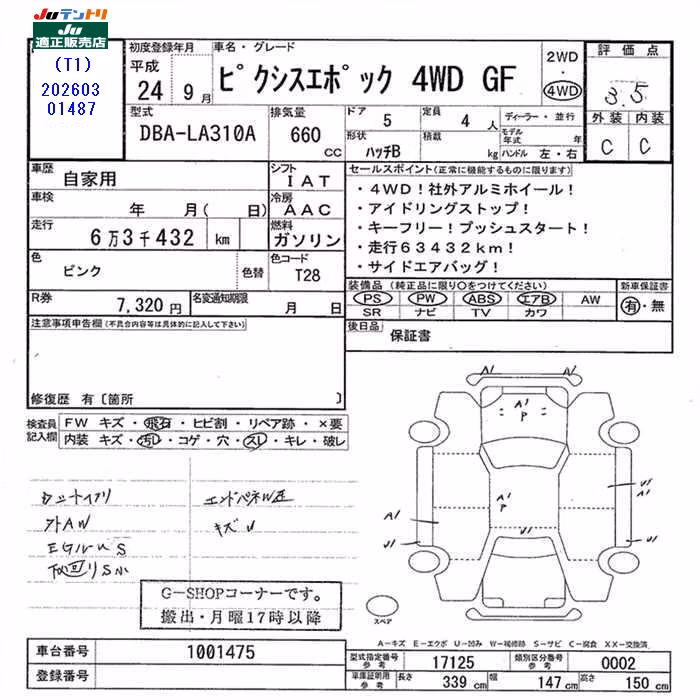 JUテントリ
JU
適正販売店
(T1)
202603
01487
初度登録年月
平成
24 9月
車名・グレード
ピクシスエポック 4WD GF
2WD
・
4WD
評価点
3.5
外装 内装
C C
型式
DBA-LA310A
排気量
660
CC
ドア
5
定員
4 人
形状
ハッチB
積載
kg
ディーラー・並行
モデル年式 年
ハンドル 左・右
車歴
自家用
シフト
IAT
車検
年 月( 日)
冷房
AAC
走行
6万3千432 km
燃料
ガソリン
色
ピンク
色替
色コード
T28
R券
7,320円
名変通知期限
月 日
セールスポイント(正常に機能するものに限ります)
・4WD!社外アルミホイール!
・アイドリングストップ!
・キーフリー!プッシュスタート!
・走行63432km!
・サイドエアバッグ!
装備品(純正品に限り○をつけてください)
PS PW ABS エアB AW
SR ナビ TV カワ
新車保証書
有・無
後日品
保証書
注意事項申告欄(不具合内容等は具体的に記入して下さい)
修復歴 有〔箇所 〕
検査員
記入欄
FW キズ・飛石・ヒビ割・リペア跡・×要
内装 キズ・汚レ・コゲ・穴・スレ・キレ・破レ
外AW
キズU
G-SHOPコーナーです。
搬出・月曜17時以降
A1 A1
A1
P
A1
P
A1
U1
U1
U1
U1
スペア
A-キズ E-エクボ U-凹み W-補修跡 S-サビ C-腐食 XX-交換済
車台番号
1001475
登録番号
型式指定番号
参考
17125
類別区分番号
参考
0002
車庫証明用
参考
長さ 339 cm
幅 147 cm
高さ 150 cm